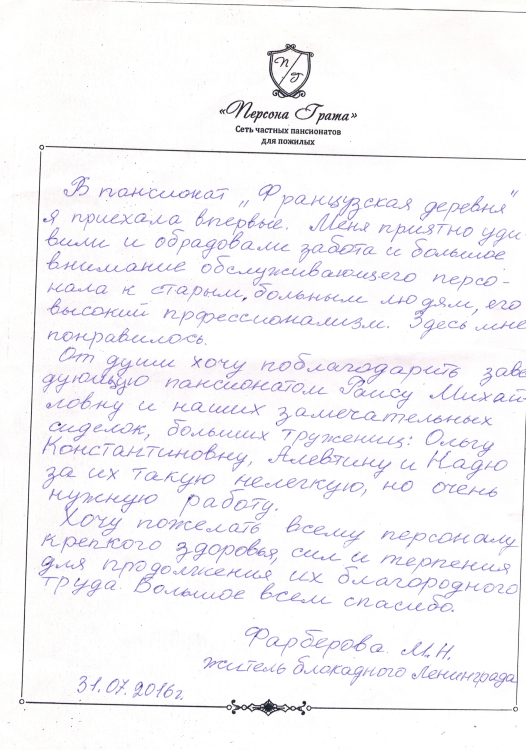 П/Г
«Персона Грата»
Сеть частных пансионатов
для пожилых
В пансионат „Французская деревня"
я приехала впервые. Меня приятно уди-
вили и обрадовали забота и большое
внимание обслуживающего персо-
нала к старым, больным людям, его
высокий прфессионализм. Здесь мне
понравилось.
От души хочу поблагодарить заве
дующую пансионатом Раису Михай
ловну и наших замечательных
сиделок, больших тружениц: Ольгу
Константиновну, Алевтину и Надю
за их такую нелегкую, но очень
нужную работу.
Хочу пожелать всему персоналу
крепкого здоровья, сил и терпения
для продолжения их благородного
труда. Большое всем спасибо.
Фарберова М.Н.
житель блокадного Ленинграда
31.07.2016г.